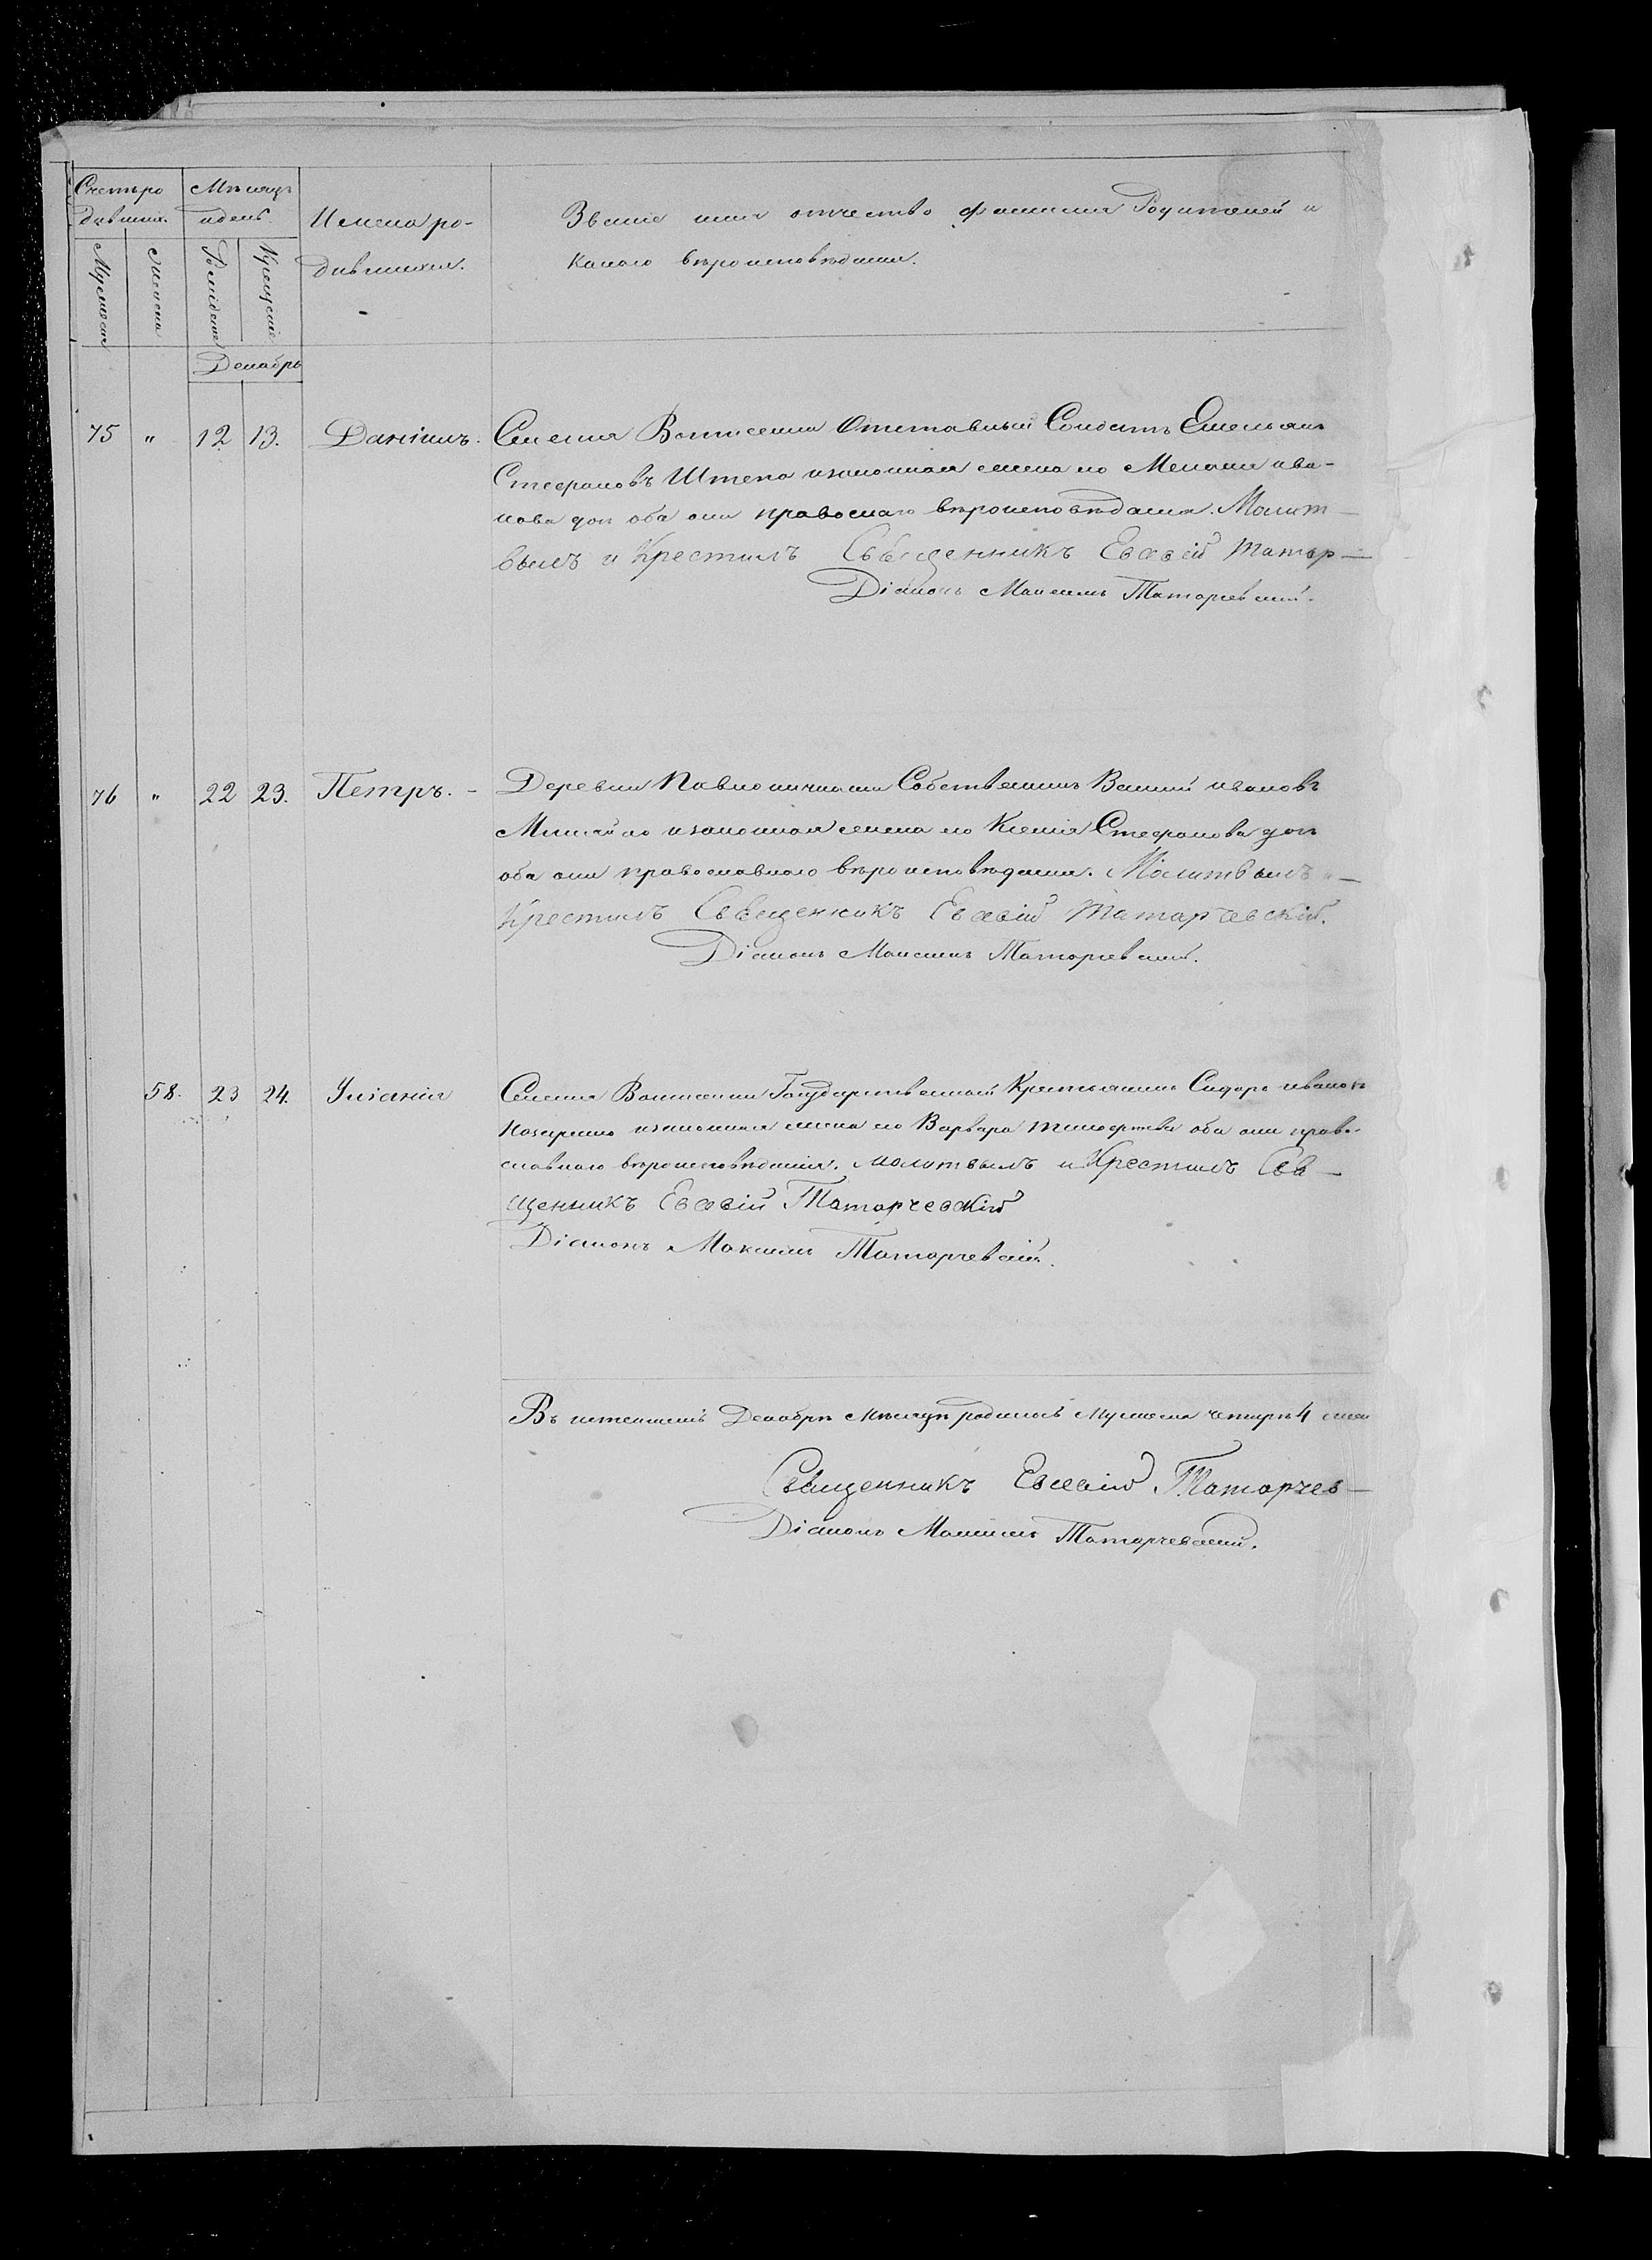 Счетъ ро Мѣсяцъ
дившихся идень Имена ро- Званіе имя отчество фамилія Родителей и
Мужеска Женска Рожденіе Крещеніе дившихся. какого вѣроисповѣданія.
Декабрь
75 " 12 13. Даніилъ. Селенія Отставный Солдатъ Емельянъ
Стефановъ Штепа изаконная жена его Меланія ива-
нова доч оба они правоснаго вѣроисповѣданія. Молит
вылъ и Крестилъ Священникъ Евсевій Татар—
Діаконъ Максимъ Татарчевскій.
76 " 22 23. Петръ. - Деревни Собственникъ иванови
изаконная жена его Ксенія Стефанова доч
оба они православнаго вѣроисповѣданія. Молитвилъ и—
Крестилъ Священникъ Евсевій Татарчевскій.
Діаконъ Максимъ Татарчевскій.
58. 23 24. Уліанія Селенія Государственный Крестьянинъ Сидоръ ивановъ
изаконная жена его Варвара Тимофѣева оба они право-
славнаго вѣроисповѣданія. Молитвилъ и Крестилъ Свя—
щенникъ Евсевій Татарчевскій
Діаконъ Максимъ Татарчевскій.
Въ Декабрѣ Мѣсяцѣ родилось Мужеска четыри 4
Священникъ Евсевій Татарчев—
Діаконъ Максимъ Татарчевскій.